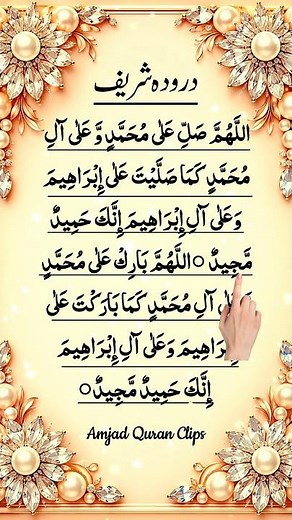 درودہ شریف
اللّٰهُمَّ صَلِّ عَلٰى مُحَمَّدٍ وَّ عَلٰى آلِ
مُحَمَّدٍ كَمَا صَلَّيْتَ عَلٰى إِبْرَاهِيمَ
وَعَلٰى آلِ إِبْرَاهِيمَ إِنَّكَ حَمِيدٌ
مَّجِيدٌ ○ اللّٰهُمَّ بَارِكْ عَلٰى مُحَمَّدٍ
آلِ مُحَمَّدٍ كَمَا بَارَكْتَ عَلٰى
إِبْرَاهِيمَ وَعَلٰى آلِ إِبْرَاهِيمَ
إِنَّكَ حَمِيدٌ مَّجِيدٌ ○
Amjad Quran Clips